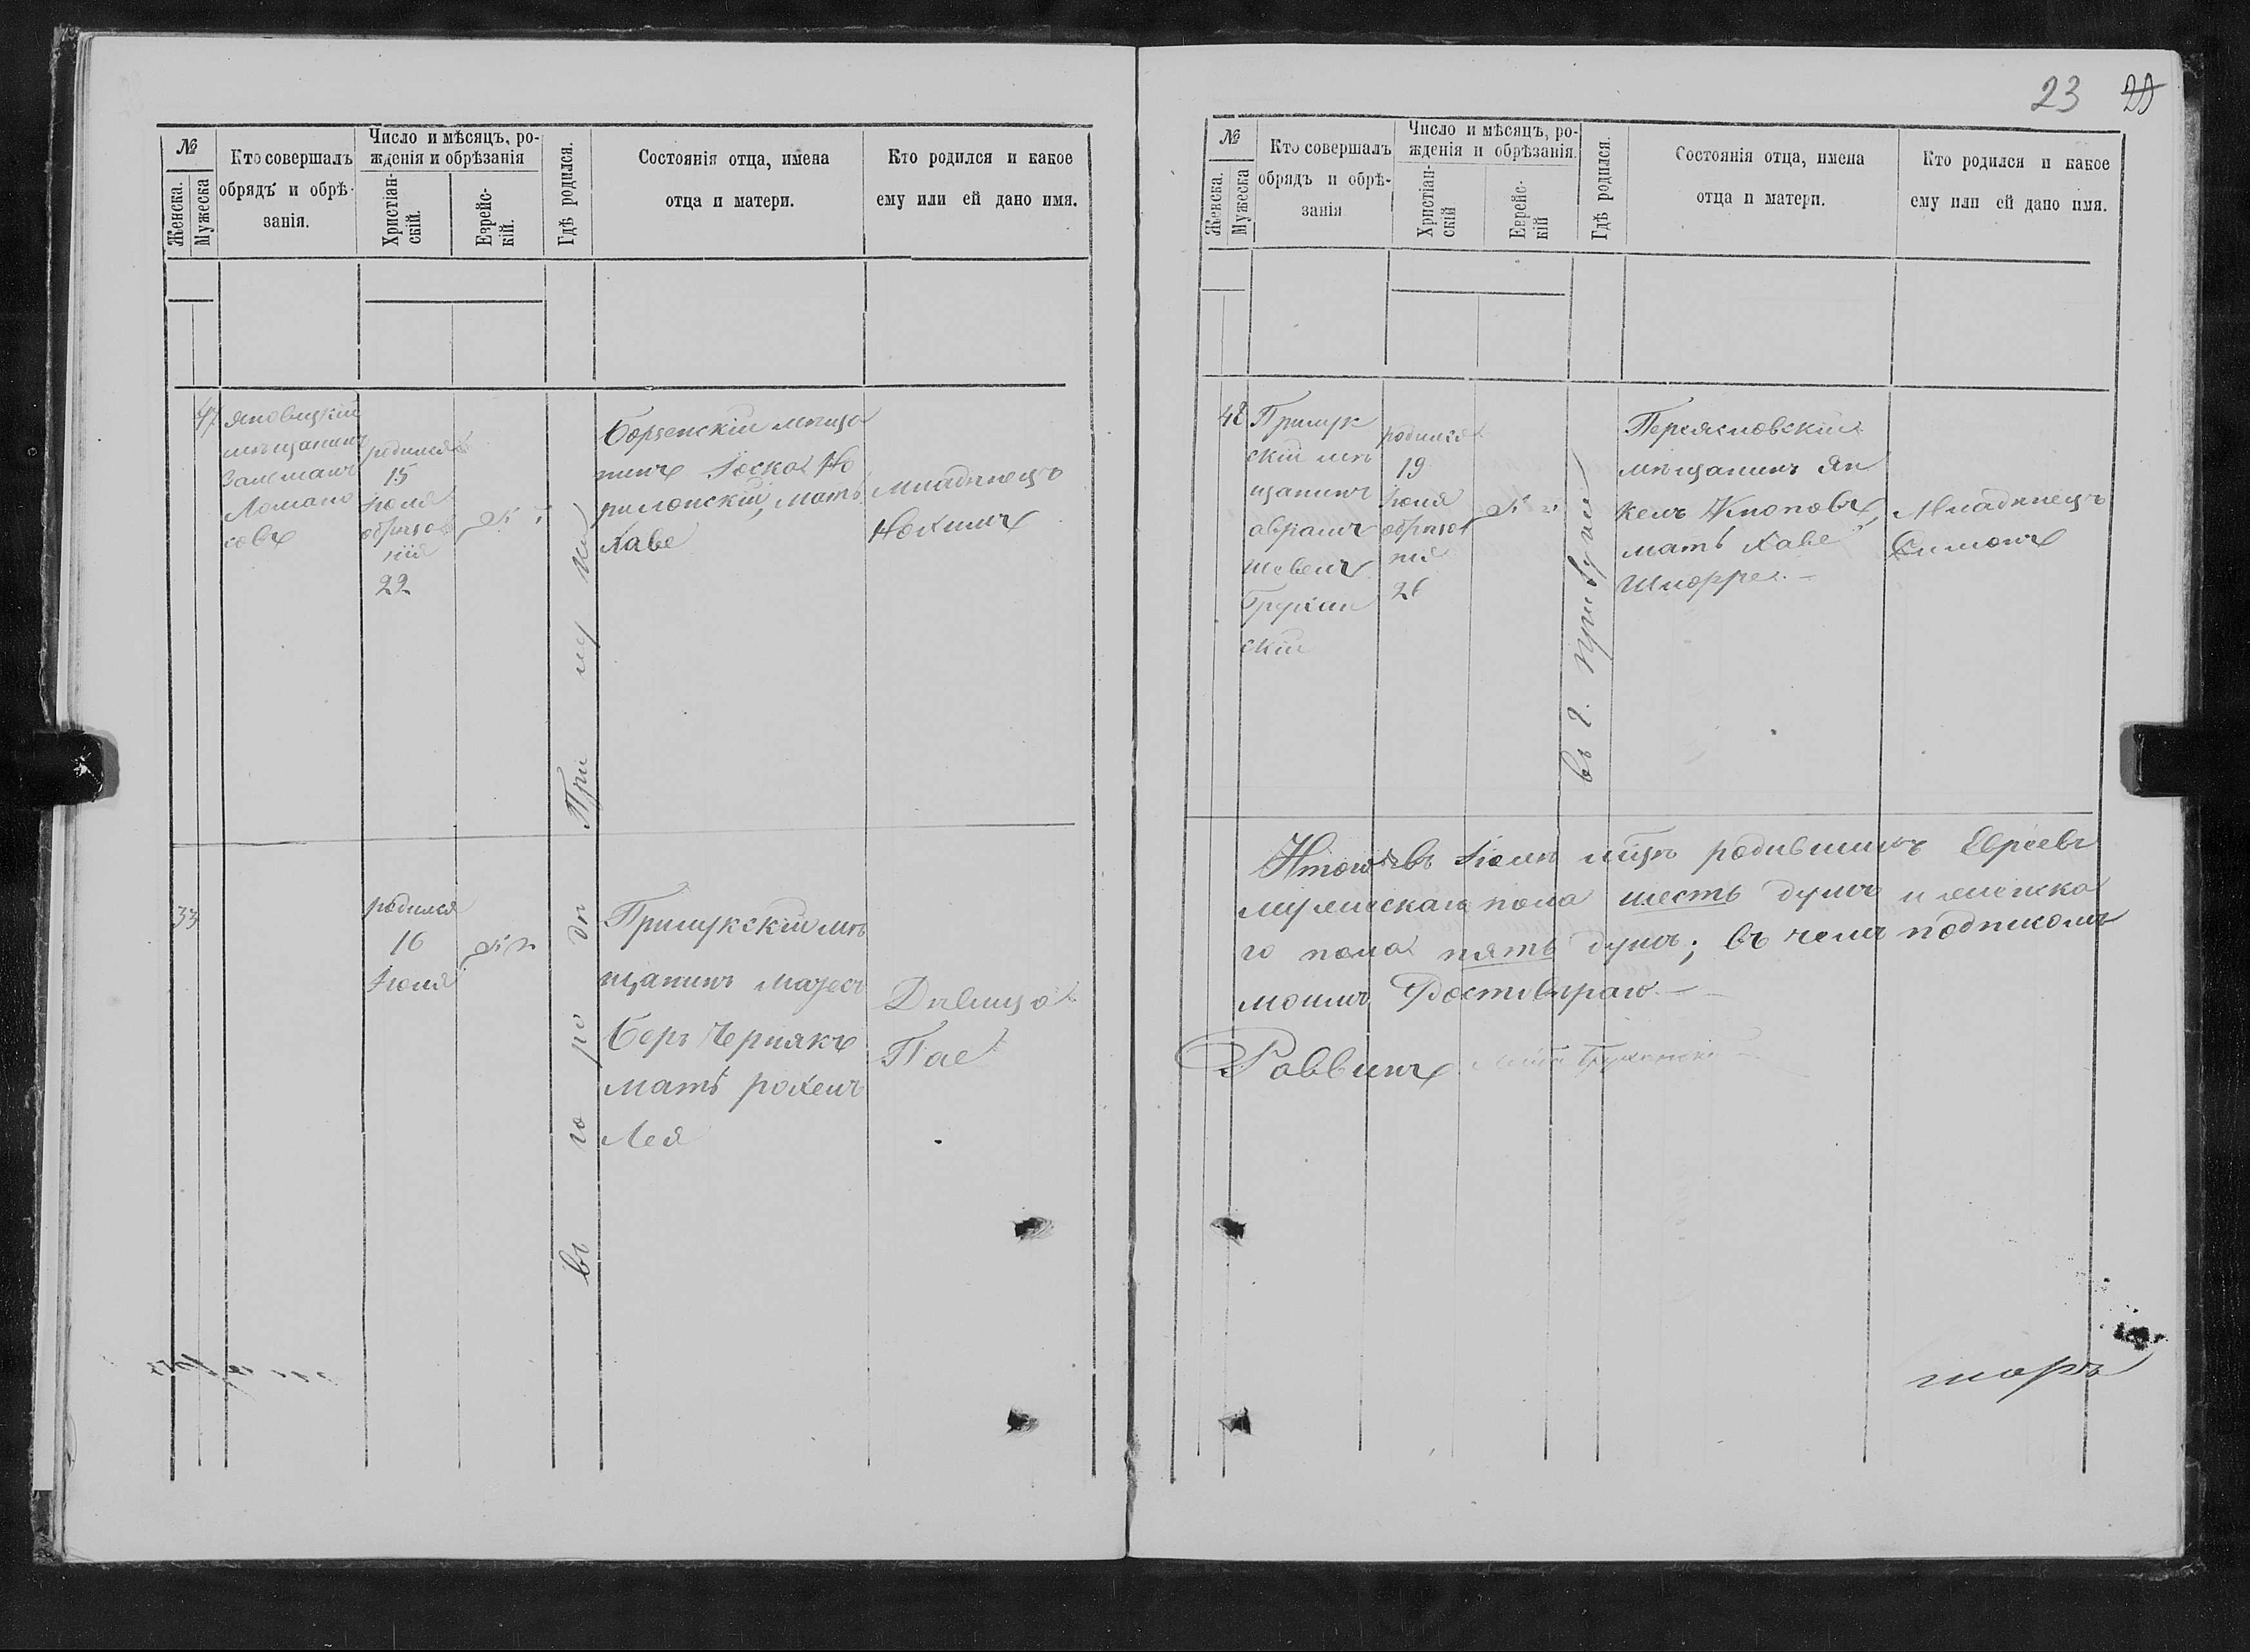 №
Женска.
Мужеска
Кто совершалъ
обрядъ и обрѣ-
занія.
Число и мѣсяцъ, ро-
жденія и обрѣзанія
Христіан-
скій.
Еврейс-
кій.
Гдѣ родился.
Состоянія отца, имена
отца и матери.
Кто родился и какое
ему или ей дано имя.
47
мѣщанинъ
Залманъ
родился
15
Іюля
обрѣза
нія
22
въ го ро дѣ При лу ки
Борзенскій мѣща
нинъ Іоска
мать
Хаве
младенецъ
Нохимъ
33
родился
16
Іюля
Прилукскій мѣ
щанинъ
Беръ Чернякъ
мать рохель
Лея
Дѣвица
Пае
23
№
Женска.
Мужеска
Кто совершалъ
обрядъ и обрѣ-
занія
Число и мѣсяцъ, ро-
жденія и обрѣзанія.
Христіан-
скій
Еврейс-
кій
Гдѣ родился.
Состоянія отца, имена
отца и матери.
Кто родился и какое
ему или ей дано имя.
48
Прилук
скій мѣ
щанинъ
абрамъ
шевель
Брухин
скій
родился
19
Іюля
обрѣза
нія
26
въ г. Прилуки
Переясловскій
мѣщанинъ Ян
кель Клоповъ,
мать Хаве
Шпоре
Младенецъ
Симонъ
Итого въ Іюлѣ мѣцѣ родившихъ Евреевъ
мужескаго пола шесть душъ и женска
го пола пять душъ; въ чемъ подписомъ
моимъ Удостовѣраю
Раввинъ